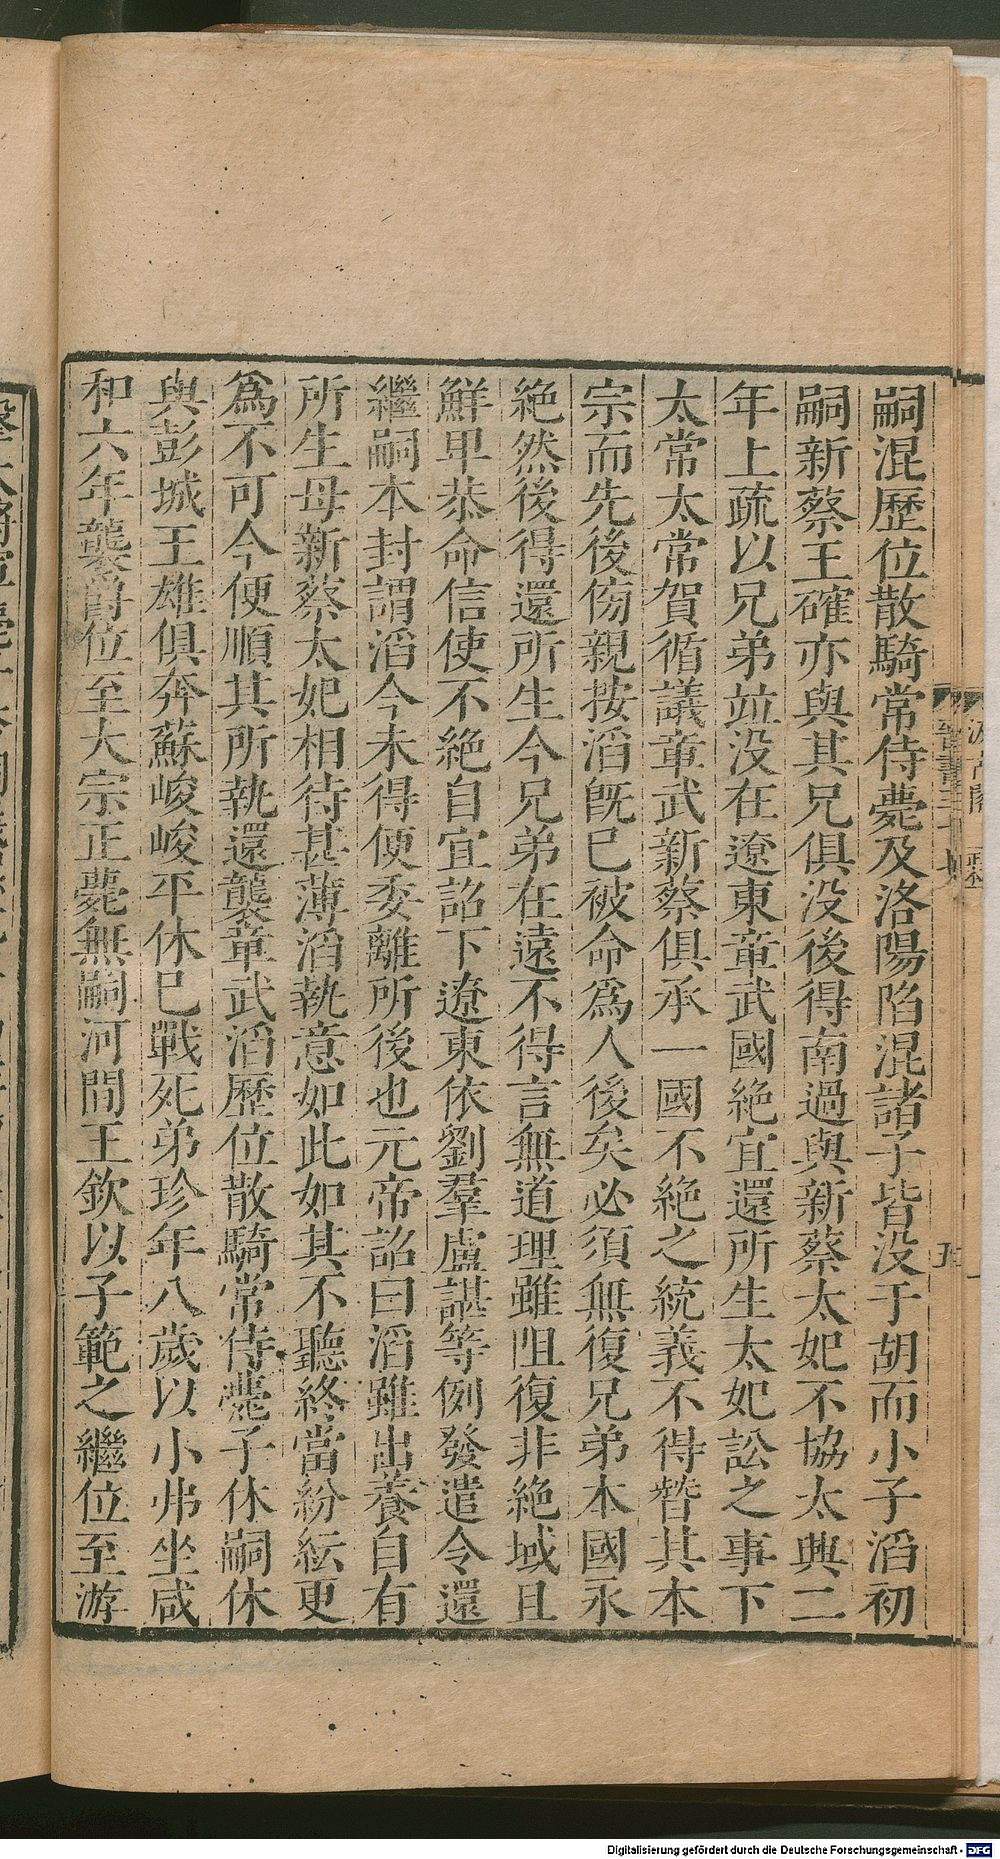 嗣混歷位散騎常侍薨及洛陽陷混諸子皆没于胡而小子滔初
嗣新蔡王確亦與其兄俱没後得南過與新蔡太妃不協太興二
年上疏以兄弟竝没在遼東章武國絶宜還所生太妃訟之事下
太常太常賀循議章武新蔡俱承一國不絶之統義不得替其本
宗而先後傍親按滔旣巳被命爲人後矣必須無復兄弟本國永
絶然後得還所生今兄弟在遠不得言無道理雖阻復非絶域且
鮮卑恭命信使不絶自宜詔下遼東依劉羣盧諶等例發遣令還
繼嗣本封謂滔今未得便委離所後也元帝詔曰滔雖出養自有
所生母新蔡太妃相待甚薄滔執意如此如其不聽終當紛紜更
爲不可今便順其所執還襲章武滔歷位散騎常侍薨子休嗣休
與彭城王雄俱奔蘇峻峻平休巳戰死弟珍年八歲以小弗坐咸
和六年襲爵位至大宗正薨無嗣河間王欽以子範之繼位至游
Digitalisierung gefördert durch die Deutsche Forschungsgemeinschaft - DFG